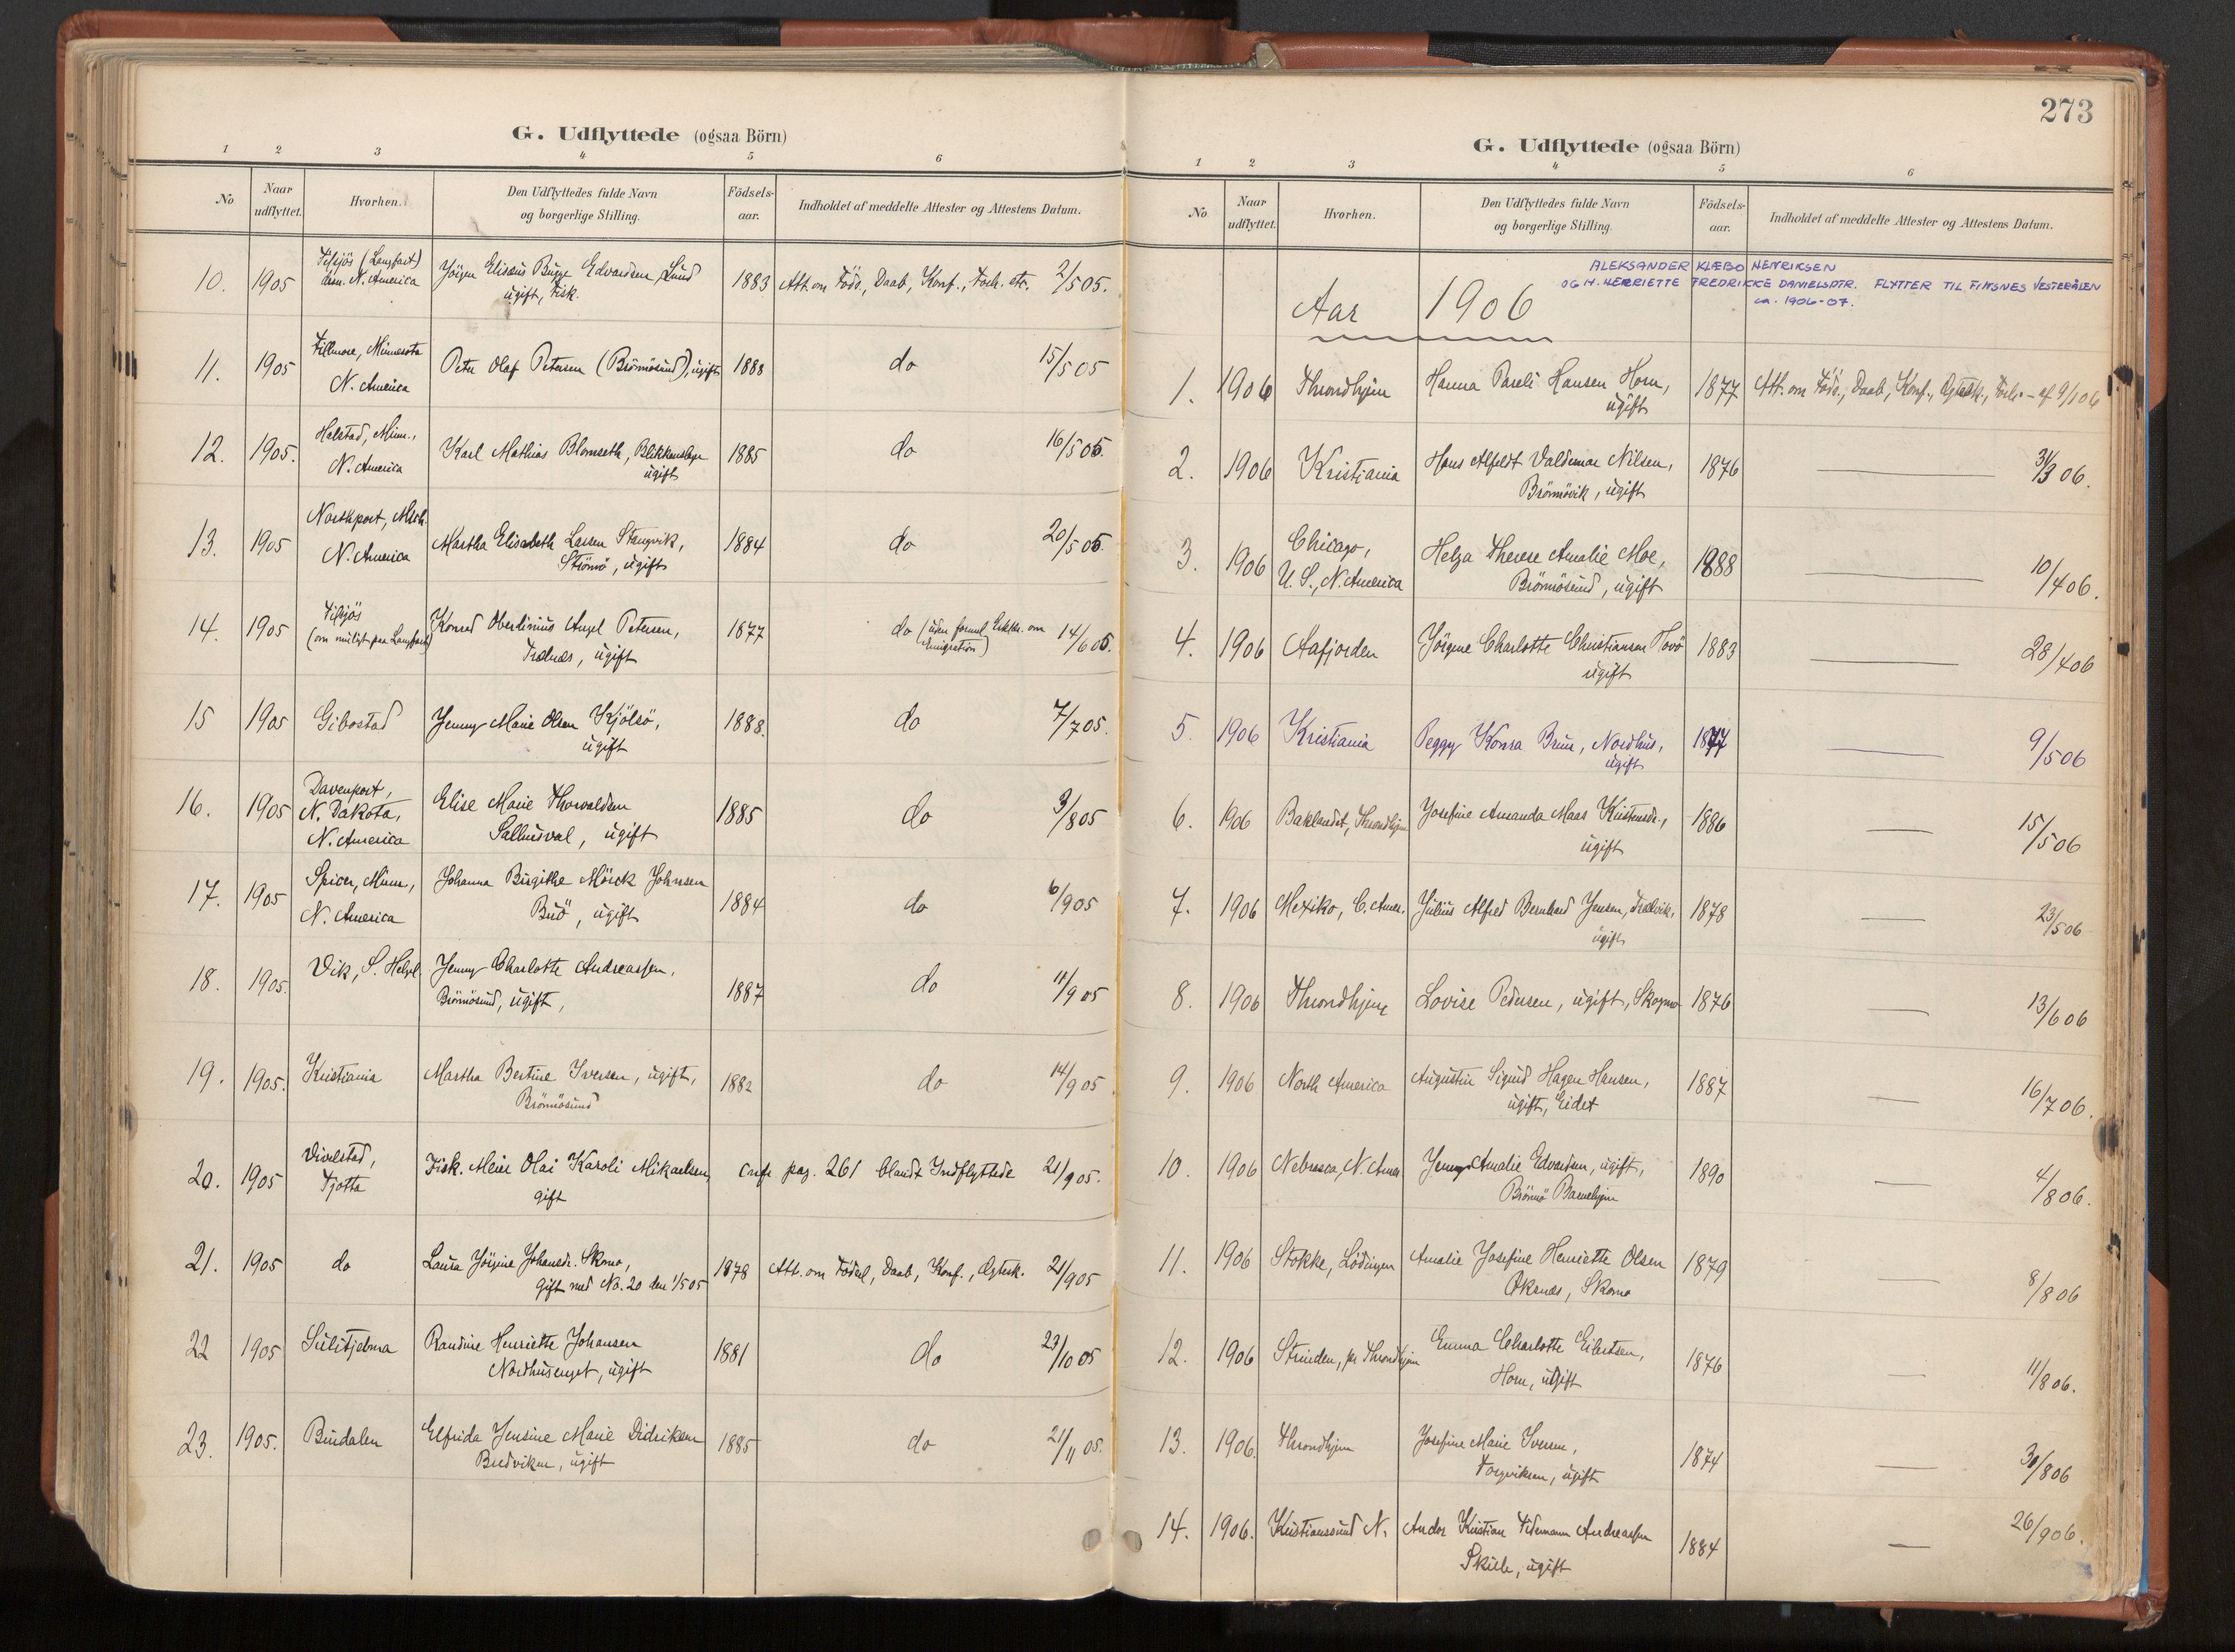 G. Udflyttede (ogsaa Börn)
1 2 3 4 5 6
No Naar udflyttet. Hvorhen. Den Udflyttedes fulde Navn og borgerlige Stilling. Födsels-aar. Indholdet af meddelte Attester og Attestens Datum.
10. 1905 Tilsjös (Langfart) N. America Jörgen Elisæus Bugge Edvardsen Lund 1883 Att. om Föds., Daab, Konf., Forh. etc. 2/5 05.
ugift, Fisk.
11. 1905 Fillmore, Minnesota Peter Olaf Petersen (Brönnösund), ugift 1888 do 15/5 05
N. America
12. 1905. Halstad, Minn., Karl Mathias Blomseth, Blikkenslager 1885 do 16/5 05.
N. America ugift
13. 1905 Northport, Mich. Martha Elisabeth Larsen Stangvik, 1884 do 20/5 05.
N. America Strömö, ugift
14. 1905 Tilsjös Konrad Oberlinius Angel Petersen, 1877 do (uden formel Erklær. om 14/6 05.
(om muligt paa Langfart) Trælnæs, ugift Emigration)
15 1905 Gibostad Jenny Marie Olsen Kjölsö, 1888. do 7/7 05.
ugift
16. 1905 Davenport, Elise Marie Thorvaldsen 1885 do 3/8 05
N. Dakota, Salhusval, ugift
N. America
17. 1905 Spicer, Minn., Johanna Birgithe Mörck Johnsen 1884 do 6/9 05
N. America Buö, ugift
18. 1905. Vik, S. Helgl. Jenny Charlotte Andreassen, 1887 do 11/9 05
Brönnösund, ugift,
19. 1905. Kristiania Martha Bertine Iversen, ugift, 1882 do 14/9 05
Brönnösund
20. 1905 Vivelstad, Fisk. Meier Olai Karoli Mikaelsen, Confr pag. 261 blandt Indflyttede 21/9 05.
Tjotta gift
21. 1905 do Laura Jörgine Johansdr. Skomo, 1878 Att. om Födsel, Daab, Konf., Ægtesk. 21/9 05
gift med No. 20 den 1/5 05
22 1905 Sulitjelma Randine Henriette Johansen 1881 do 23/10 05
Nordhusenget, ugift
23. 1905. Bindalen Elfrida Jensine Marie Didriksen 1885 do 21/11 05.
Bredviken, ugift
273
G. Udflyttede (ogsaa Börn)
1 2 3 4 5 6
No Naar udflyttet. Hvorhen. Den Udflyttedes fulde Navn og borgerlige Stilling. Födsels-aar. Indholdet af meddelte Attester og Attestens Datum.
ALEKSANDER KLÆBO HENRIKSEN
OG H. HENRIETTE FREDRIKKE DANIELSDTR. FLYTTER TIL FINSNES VESTERÅLEN
ca. 1906-07.
Aar 1906
1. 1906 Throndhjem Hanna Pareli Hansen Horn, 1877 Att. om Föds., Daab, Konf., Ægtesk., Forh. - af 9/1 06
ugift
2. 1906 Kristiania Hans Alfeldt Valdemar Nilsen, 1876 31/3 06.
Brönnövik, ugift
3. 1906 Chicago, Helga Therese Amalie Moe, 1888 10/4 06.
U.S., N. America Brönnösund, ugift
4. 1906 Aafjorden Jörgine Charlotte Christiansen Tovö 1883 28/4 06
ugift
5. 1906 Kristiania Peggy Konra Brun, Nordhus, 1877 9/5 06
ugift
6. 1906 Baklandet, Throndhjem Josefine Amanda Maas Kristensdr., 1886 15/5 06
ugift
7. 1906 Mexiko, C. Amer. Julius Alfred Bernhard Jensen, Trælvik, 1878 23/5 06
ugift
8. 1906 Throndhjem Lovise Pedersen, ugift, Skogmo 1876 13/6 06
9. 1906 North America Augustin Sigurd Hagen Hansen, 1887 16/7 06.
ugift, Eidet
10. 1906 Nebrasca, N. Amer. Jenny Amalie Edvardsen, ugift, 1890 4/8 06.
Brönnö Barnehjem
11. 1906 Stokke, Lödingen Amalie Josefine Henriette Olsen 1879 8/8 06
Öksnæs, Skomo
12. 1906 Strinden, pr Throndhjem Emma Charlotte Eilertsen, 1876 11/8 06.
Horn, ugift
13. 1906 Throndhjem Josefine Marie Iversen, 1874 30/8 06
Torgviksen, ugift
14. 1906. Kristianssund N. Andor Kristian Tidemann Andreassen 1884 26/9 06.
Skille, ugift